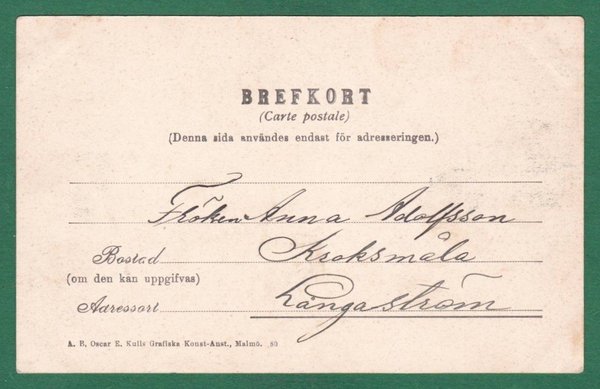 BREFKORT
(Carte postale)
(Denna sida användes endast för adresseringen.)
Fröken Anna Adolfsson
Bostad Kroksmåla
(om den kan uppgifvas)
Adressort Långaström
A. B. Oscar E. Kulls Grafiska Konst-Anst., Malmö. 80